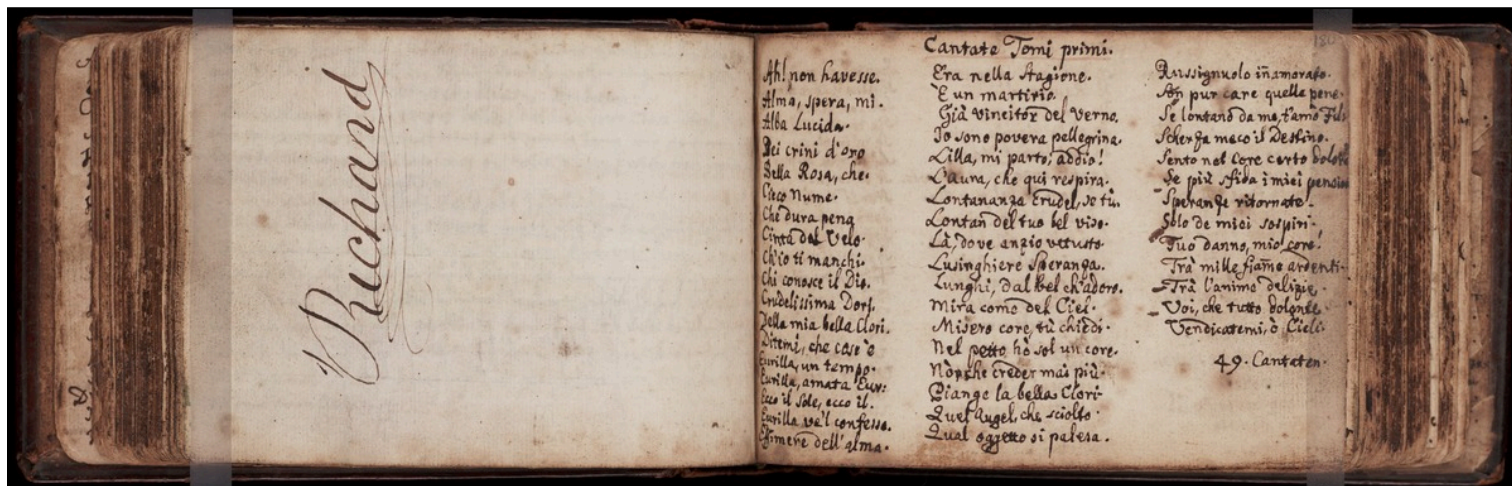 Richard
Cantate Tomi primi.
Ah! non havesse.
Alma, spera, mi.
Alba Lucida.
Bei crini d'oro
Bella Rosa, che.
Cieco Nume.
Che dura pena
Cinta del Velo.
Ch'io ti manchi.
Chi conosce il Dio.
Crudelissima Dori.
Della mia bella Clori.
Ditemi, che cose è
Eurilla, un tempo.
Eurilla, amata Eur:
Ecco il Sole, ecco il.
Eurilla ve'l confesso.
Effimere dell'alma.
Era nella stagione.
È un martirio.
Già vincitor del verno.
Io sono povera pellegrina.
Lilla, mi parto, addio!
L'aura, che qui respira.
Lontananza crudel, se tù.
Lontan del tuo bel viso.
Là, dove anzio vetusto.
Lusinghiere Speranza.
Lunghi, dal bel ch'adoro.
Mira como del Ciel.
Misero core, tù chiedi.
Nel petto, hò sol un core.
creder mai più.
Piange la bella Clori
Quel Augel, che sciolto.
Qual oggetto si palesa.
180
Russignuolo iñamorato.
Son pur care quelle pene.
Se lontano da me, t'amò
Scherza meco il Destino.
Sento nel Core certo
Se più sfida i miei
Speranze ritornate.
Solo de miei sospiri.
Tuo danno, mio core!
Trà mille fiam̃e ardenti.
Trà l'anime delizie.
Voi, che tutto dolente
Vendicatemi, ò Cieli.
49. Cantaten.